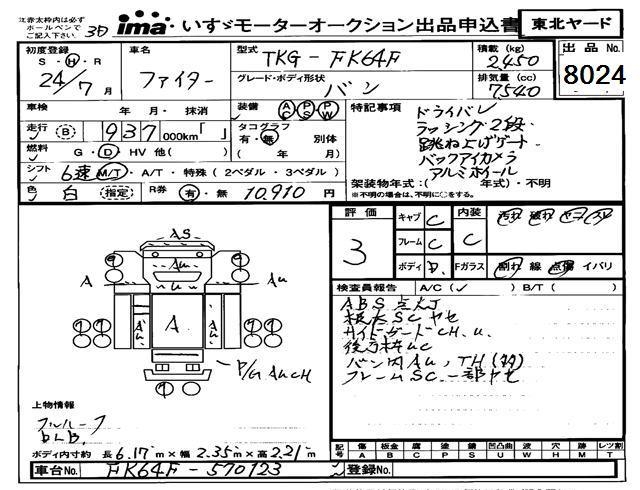 注赤太枠内は必ず
ボールペンで
ご記入下さい。
ima いすゞモーターオークション出品申込書 東北ヤード
初度登録 S・H・R
24/7月
車名 ファイター
型式 TKG-FK64F
積載(kg) 2,450
グレード・ボディ形状 バン
排気量(cc) 7540
出品No. 8024
車検 年 月・抹消
装備 AC PS PW
特記事項
走行 B 937 000km「 」
タコグラフ 有・無 別体
( 年 月)
燃料 G・D・HV 他( )
シフト 6速 M/T・A/T・特殊(2ペダル・3ペダル)
色 白 指定 R券 有・無 10,910円
ドライバン
ラッシング2段
跳ね上げゲート
バックアイカメラ
アルミホイール
架装物年式:( 年式)・不明
※不明の場合は、不明に○をする。
評価 3
キャブ C 内装 C
フレーム C
ボディ D
汚れ 破れ
Fガラス 割れ 線 点傷 イバリ
検査員報告 A/C(✓) B/T( )
ABS点灯
根太SCヤセ
サイドガードCH.U.
後方枠UC
バン内AU,TH
フレームSC一部ヤセ
AS
A
AU
A
P/G AUCH
上物情報
フルルーフ
ボディ内寸約 長6.17m×幅2.35m×高2.21m
記号 傷A 板金B 腐C 塗P 錆S 凹凸曲U 波W 穴H 跡M 汚T レツ割
車台No. FK64F-570123 登録No.